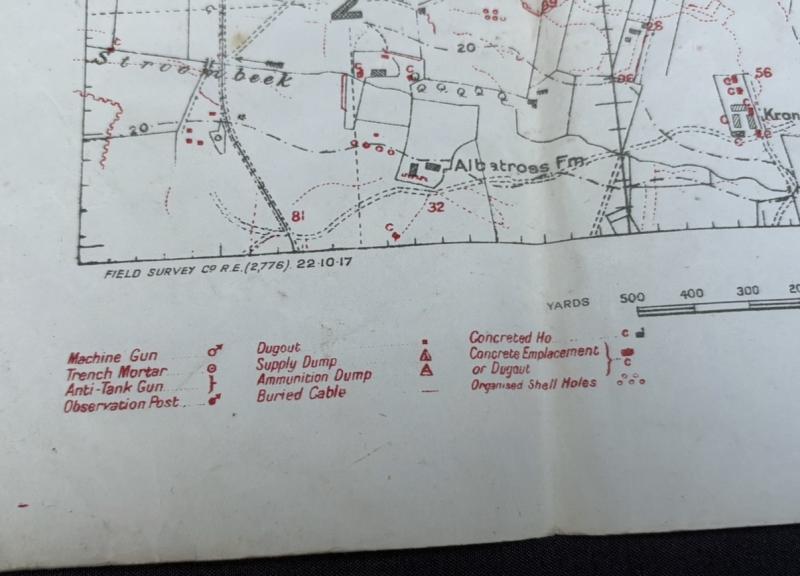 2
89
28
20
Stroombeek
C
C
86
56
C
C
C
C
C
Kron
20
Albatross Fm
81
32
C
FIELD SURVEY Co R.E. (2,776) 22·10·17
YARDS 500 400 300
Machine Gun
Trench Mortar
Anti-Tank Gun
Observation Post
Dugout
Supply Dump
Ammunition Dump
Buried Cable
Concreted Ho C
Concrete Emplacement
or Dugout C
Organised Shell Holes